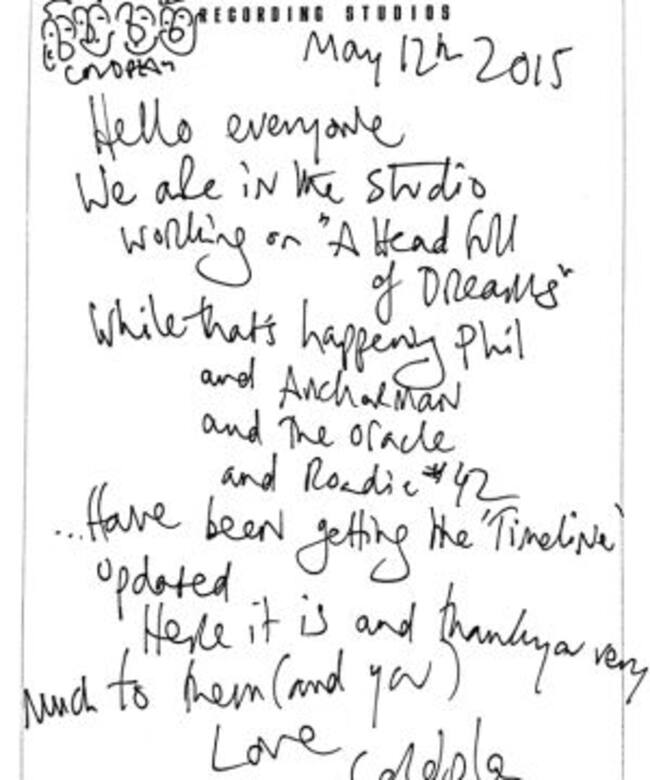 RECORDING STUDIOS
COLDPLAY
May 12th 2015
Hello everyone
We are in the studio
working on "A Head Full
of Dreams"
While that's happening Phil
and Anchorman
and The Oracle
and Roadie #42
...Have been getting the 'Timeline'
updated
Here it is and thankyou very
much to them (and you)
Love
Coldpla